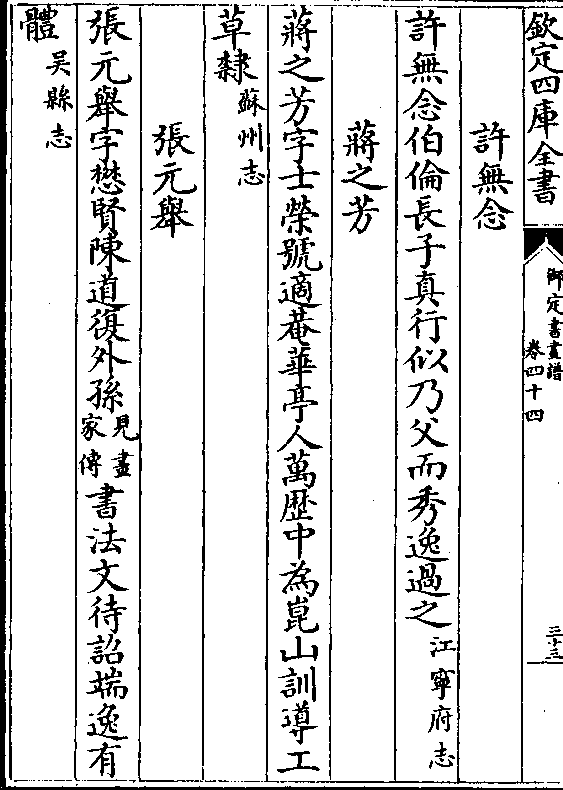 欽定四庫全書
御定書畫譜
卷四十四
三十三
許無念
許無念伯倫長子真行似乃父而秀逸過之江寧府志
蔣之芳
蔣之芳字士榮號適菴華亭人萬歷中為崑山訓導工
草隸蘇州志
張元舉
張元舉字懋賢陳道復外孫見畫家傳書法文待詔端逸有
體吳縣志